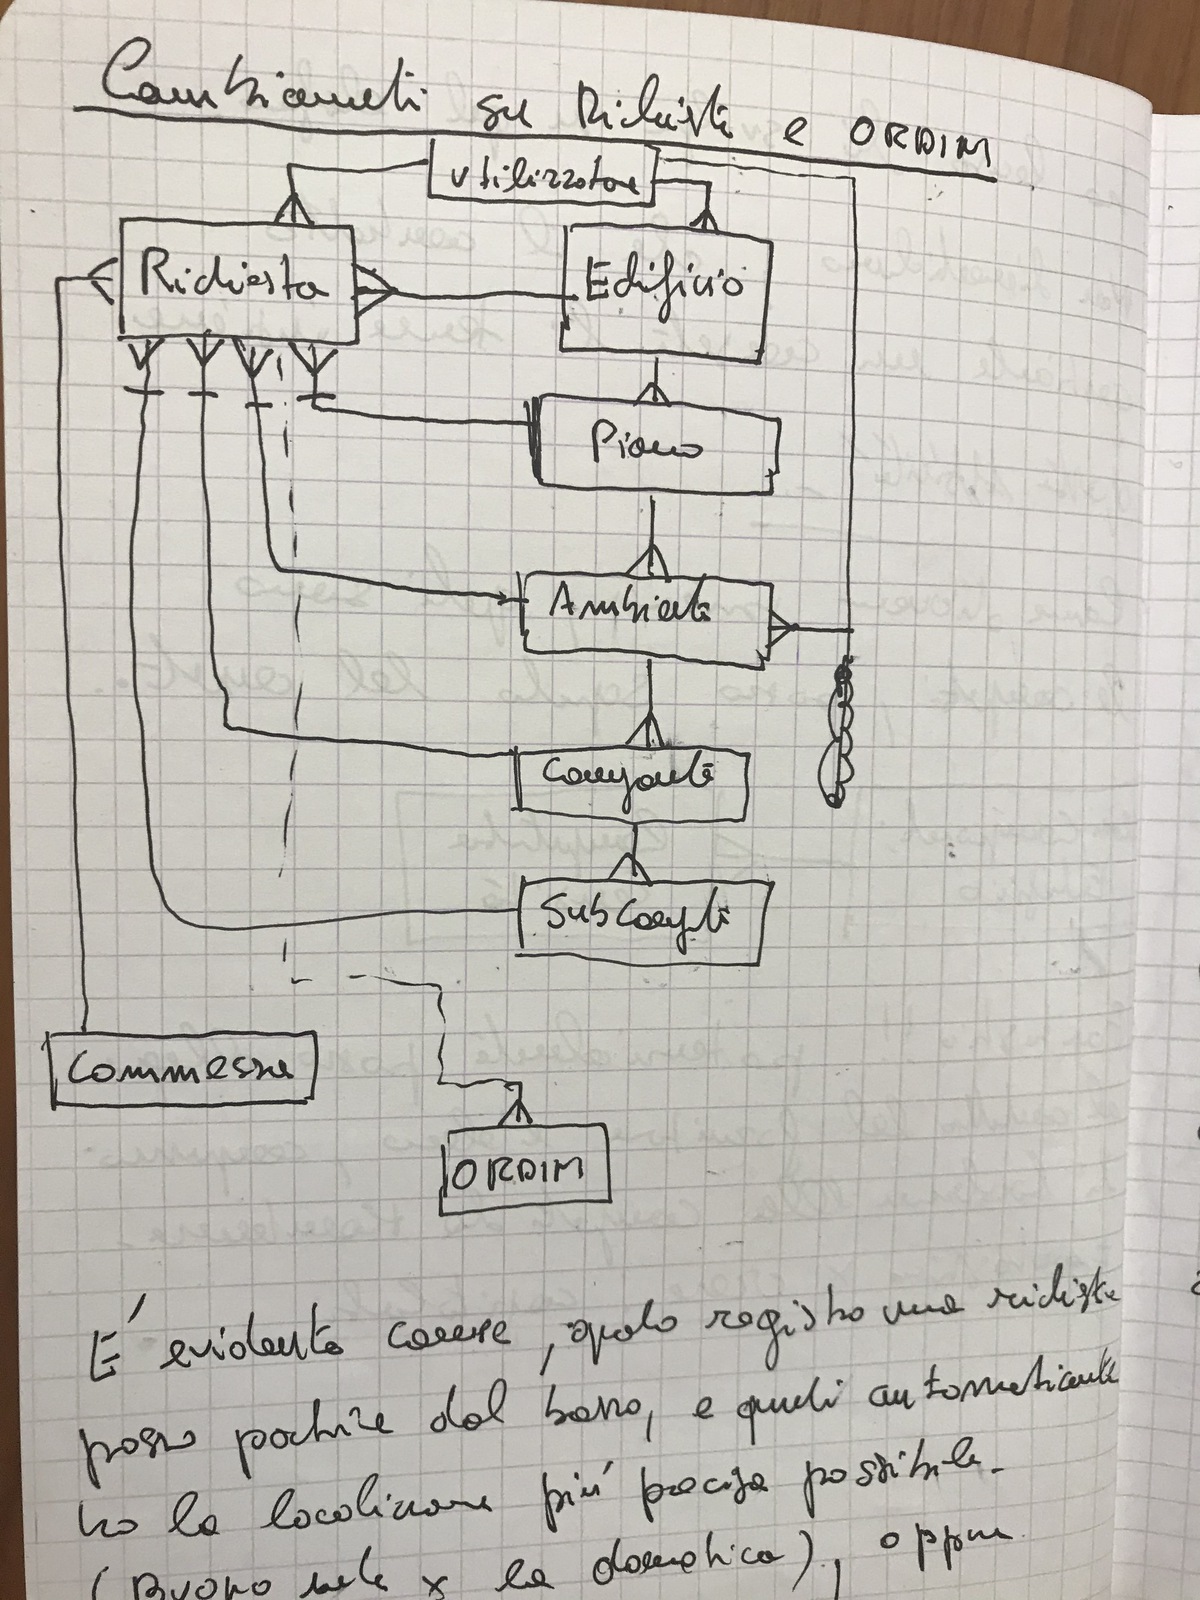 Cambiamenti su Richieste e ORDINI
Utilizzatore
Richiesta
Edificio
Piano
Ambienti
Componenti
SubCompti
Commessa
ORDINI
É evidente come, quando registro una richiesta
posso partire dal basso, e quindi automaticamente
ho la locali più precisa possibile.
(Buono x la domotica), oppure